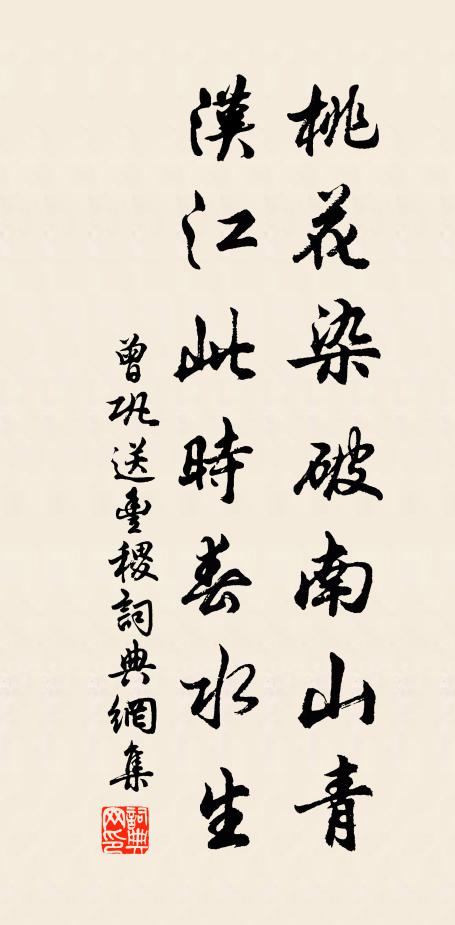 桃花染破南山青
漢江此時春水生
曾巩送豐稷詞典網集
詞典网印